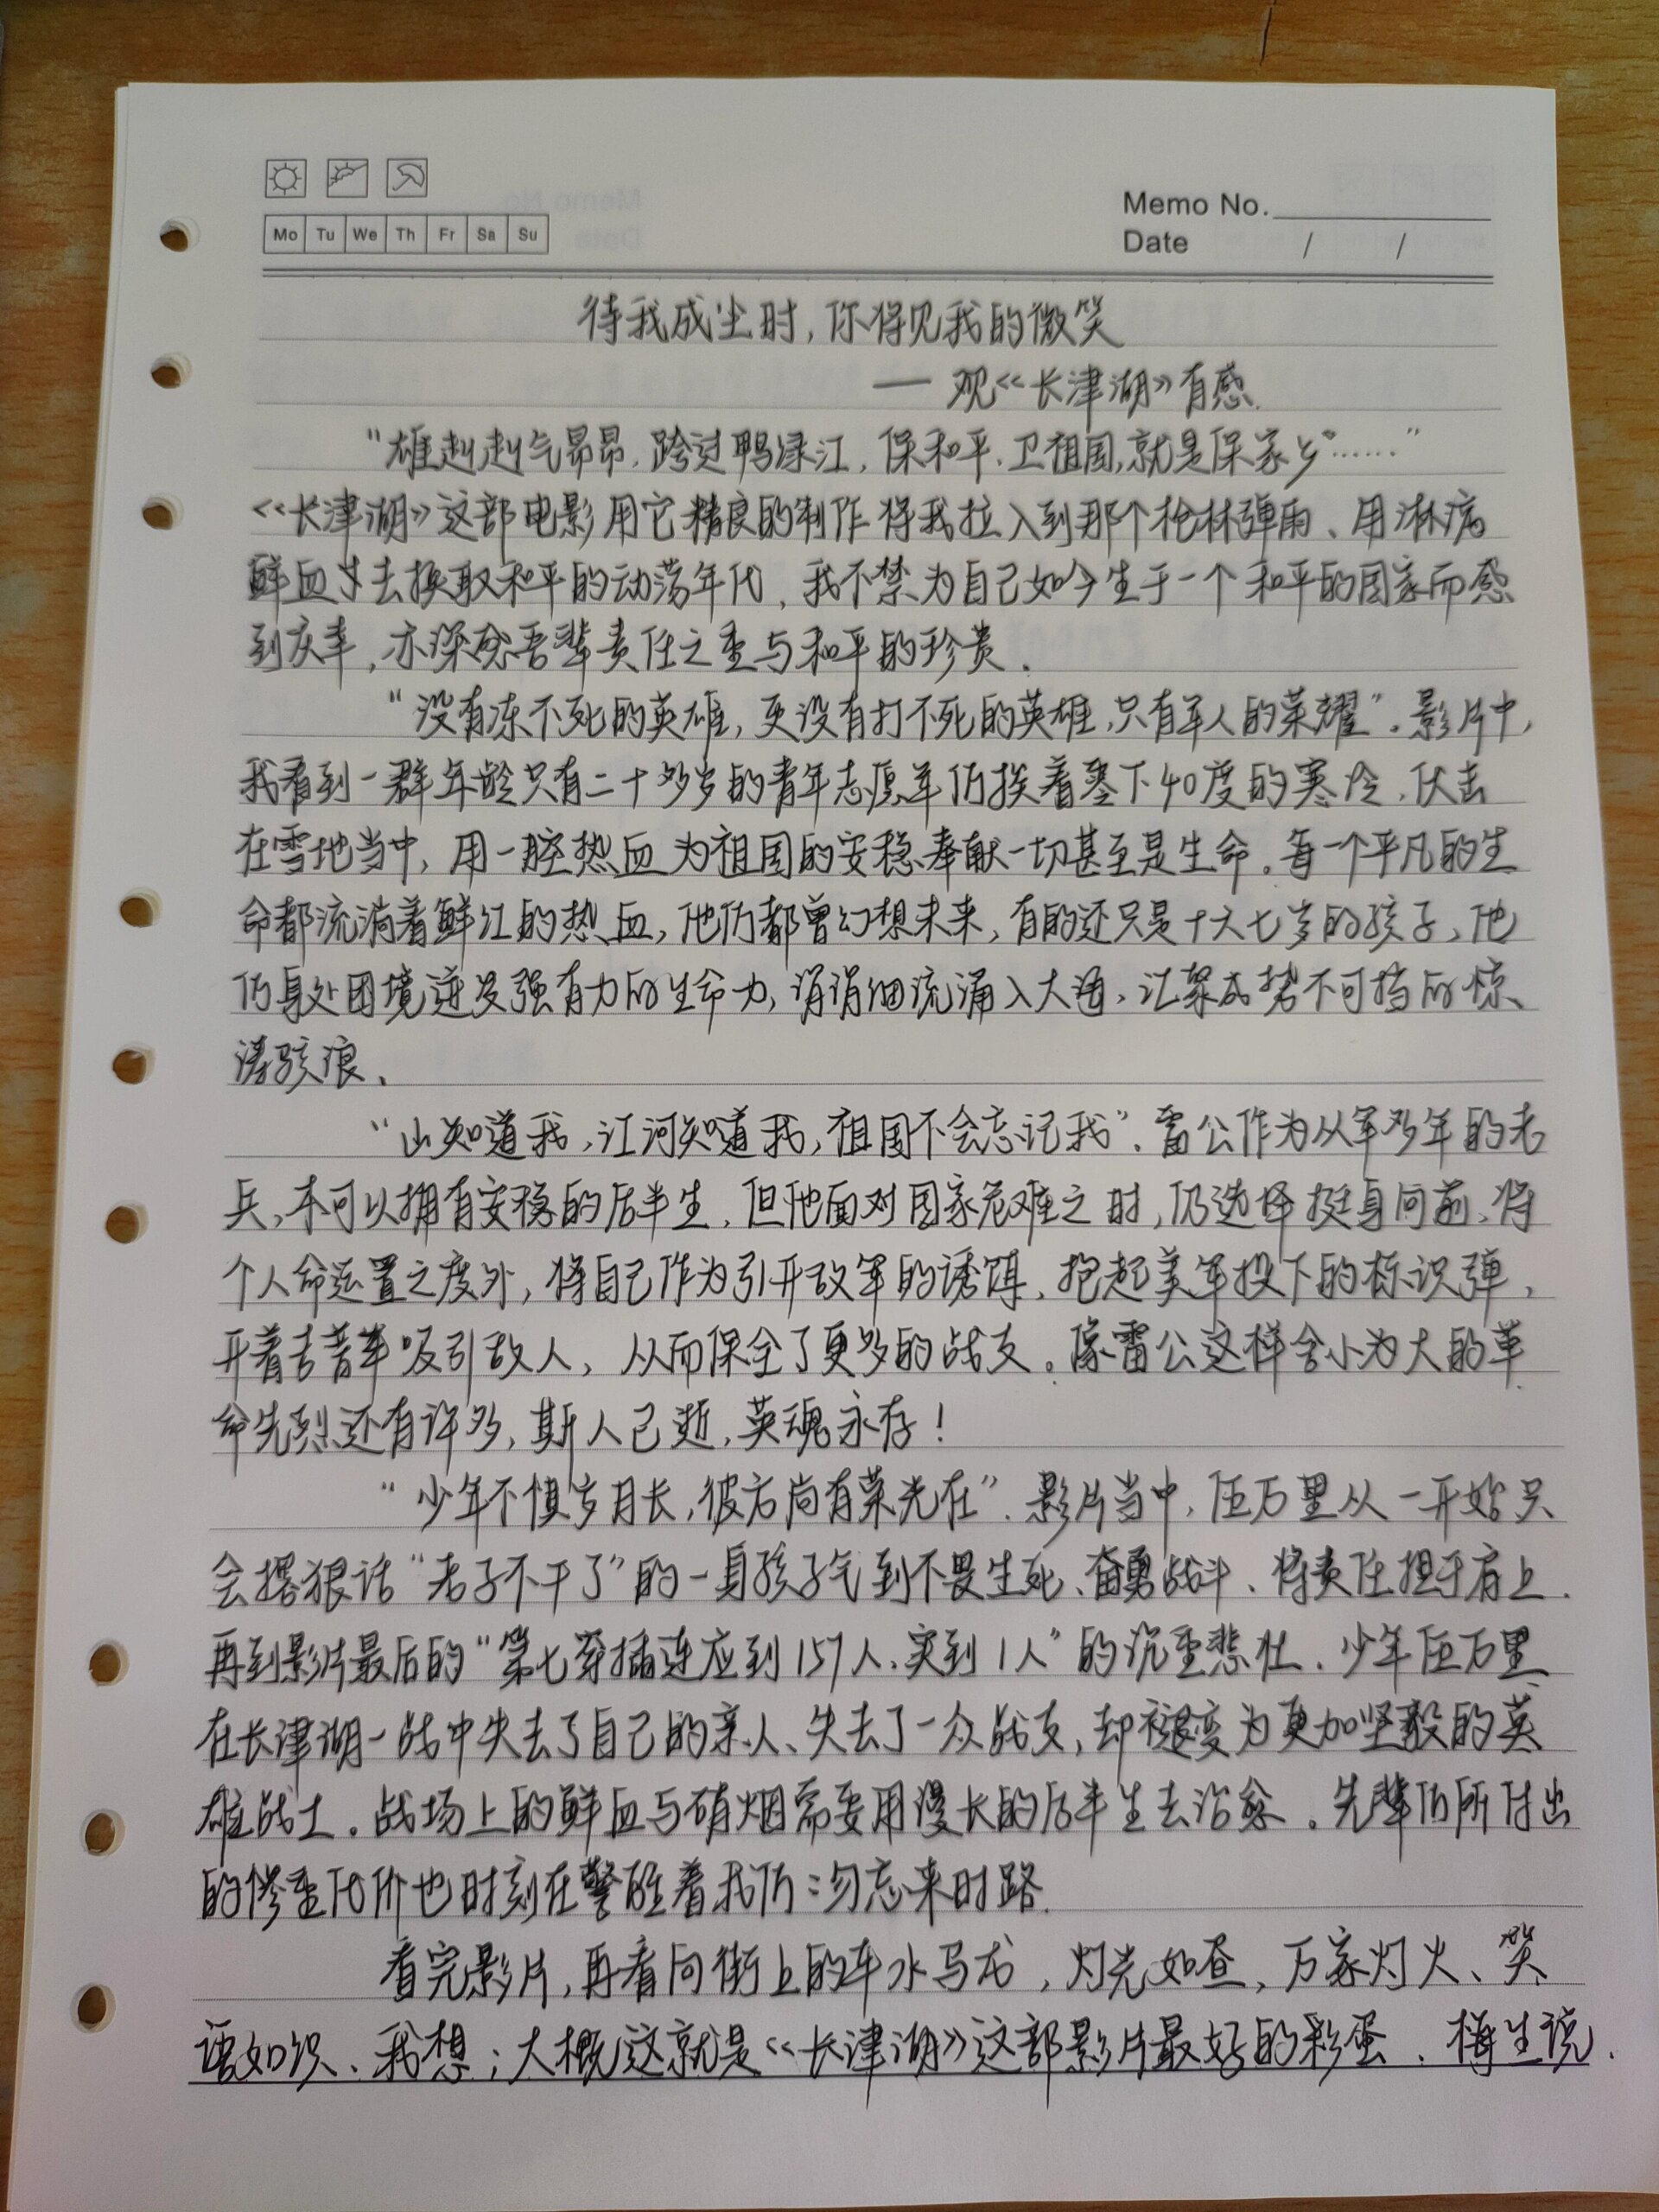 Mo Tu We Th Fr Sa Su
Memo No.
Date / /
待我成尘时,你将见我的微笑
— 观《长津湖》有感.
“雄赳赳气昂昂,跨过鸭绿江,保和平,卫祖国,就是保家乡……”
《长津湖》这部电影用它精良的制作将我拉入到那个枪林弹雨、用淋漓
鲜血去换取和平的动荡年代,我不禁为自己如今生于一个和平的国家而感
到庆幸,亦深感吾辈责任之重与和平的珍贵.
“没有冻不死的英雄,更没有打不死的英雄,只有军人的荣耀”.影片中,
我看到一群年龄只有二十多岁的青年志愿军们挨着零下40度的寒冷,伏击
在雪地当中,用一腔热血为祖国的安稳奉献一切甚至是生命.每一个平凡的生
命都流淌着鲜红的热血,他们都曾幻想未来,有的还只是十六七岁的孩子,他
们身处困境迸发强有力的生命力,涓涓细流涌入大海,汇聚成势不可挡的惊
涛骇浪、
“山知道我,江河知道我,祖国不会忘记我”.雷公作为从军多年的老
兵,本可以拥有安稳的后半生,但他面对国家危难之时,仍选择挺身向前,将
个人命运置之度外,将自己作为引开敌军的诱饵,抱起美军投下的标识弹,
开着吉普车吸引敌人,从而保全了更多的战友.像雷公这样舍小为大的革
命先烈还有许多,斯人已逝,英魂永存!
“少年不惧岁月长,彼方尚有荣光在”.影片当中,伍万里从一开始只
会撂狠话“老子不干了”的一身孩子气到不畏生死、奋勇战斗、将责任担于肩上.
再到影片最后的“第七穿插连应到157人,实到1人”的沉重悲壮.少年伍万里
在长津湖一战中失去了自己的亲人、失去了一众战友,却褪变为更加坚毅的英
雄战士.战场上的鲜血与硝烟需要用漫长的后半生去治愈.先辈们所付出
的惨重代价也时刻在警醒着我们:勿忘来时路.
看完影片,再看向街上的车水马龙,灯光如昼,万家灯火、笑
语如织、我想;大概这就是《长津湖》这部影片最好的彩蛋、梅生说.